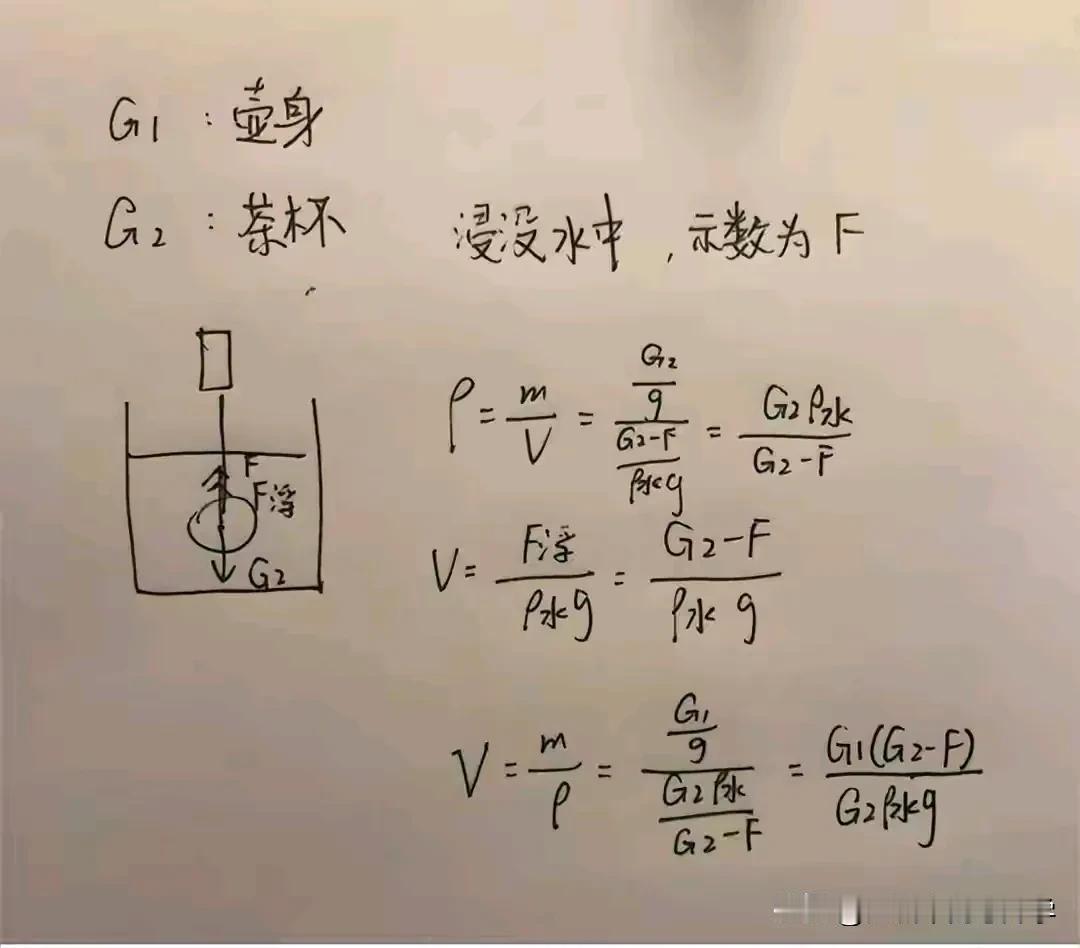 G1 : 壶身
G2 : 茶杯 浸没水中,示数为F
ρ = m/V = (G2/g)/((G2-F)/(ρ水g)) = G2ρ水/(G2-F)
F
F浮
G2
V = F浮/(ρ水g) = (G2-F)/(ρ水 g)
V = m/ρ = (G1/g)/(G2ρ水/(G2-F)) = G1(G2-F)/(G2ρ水g)